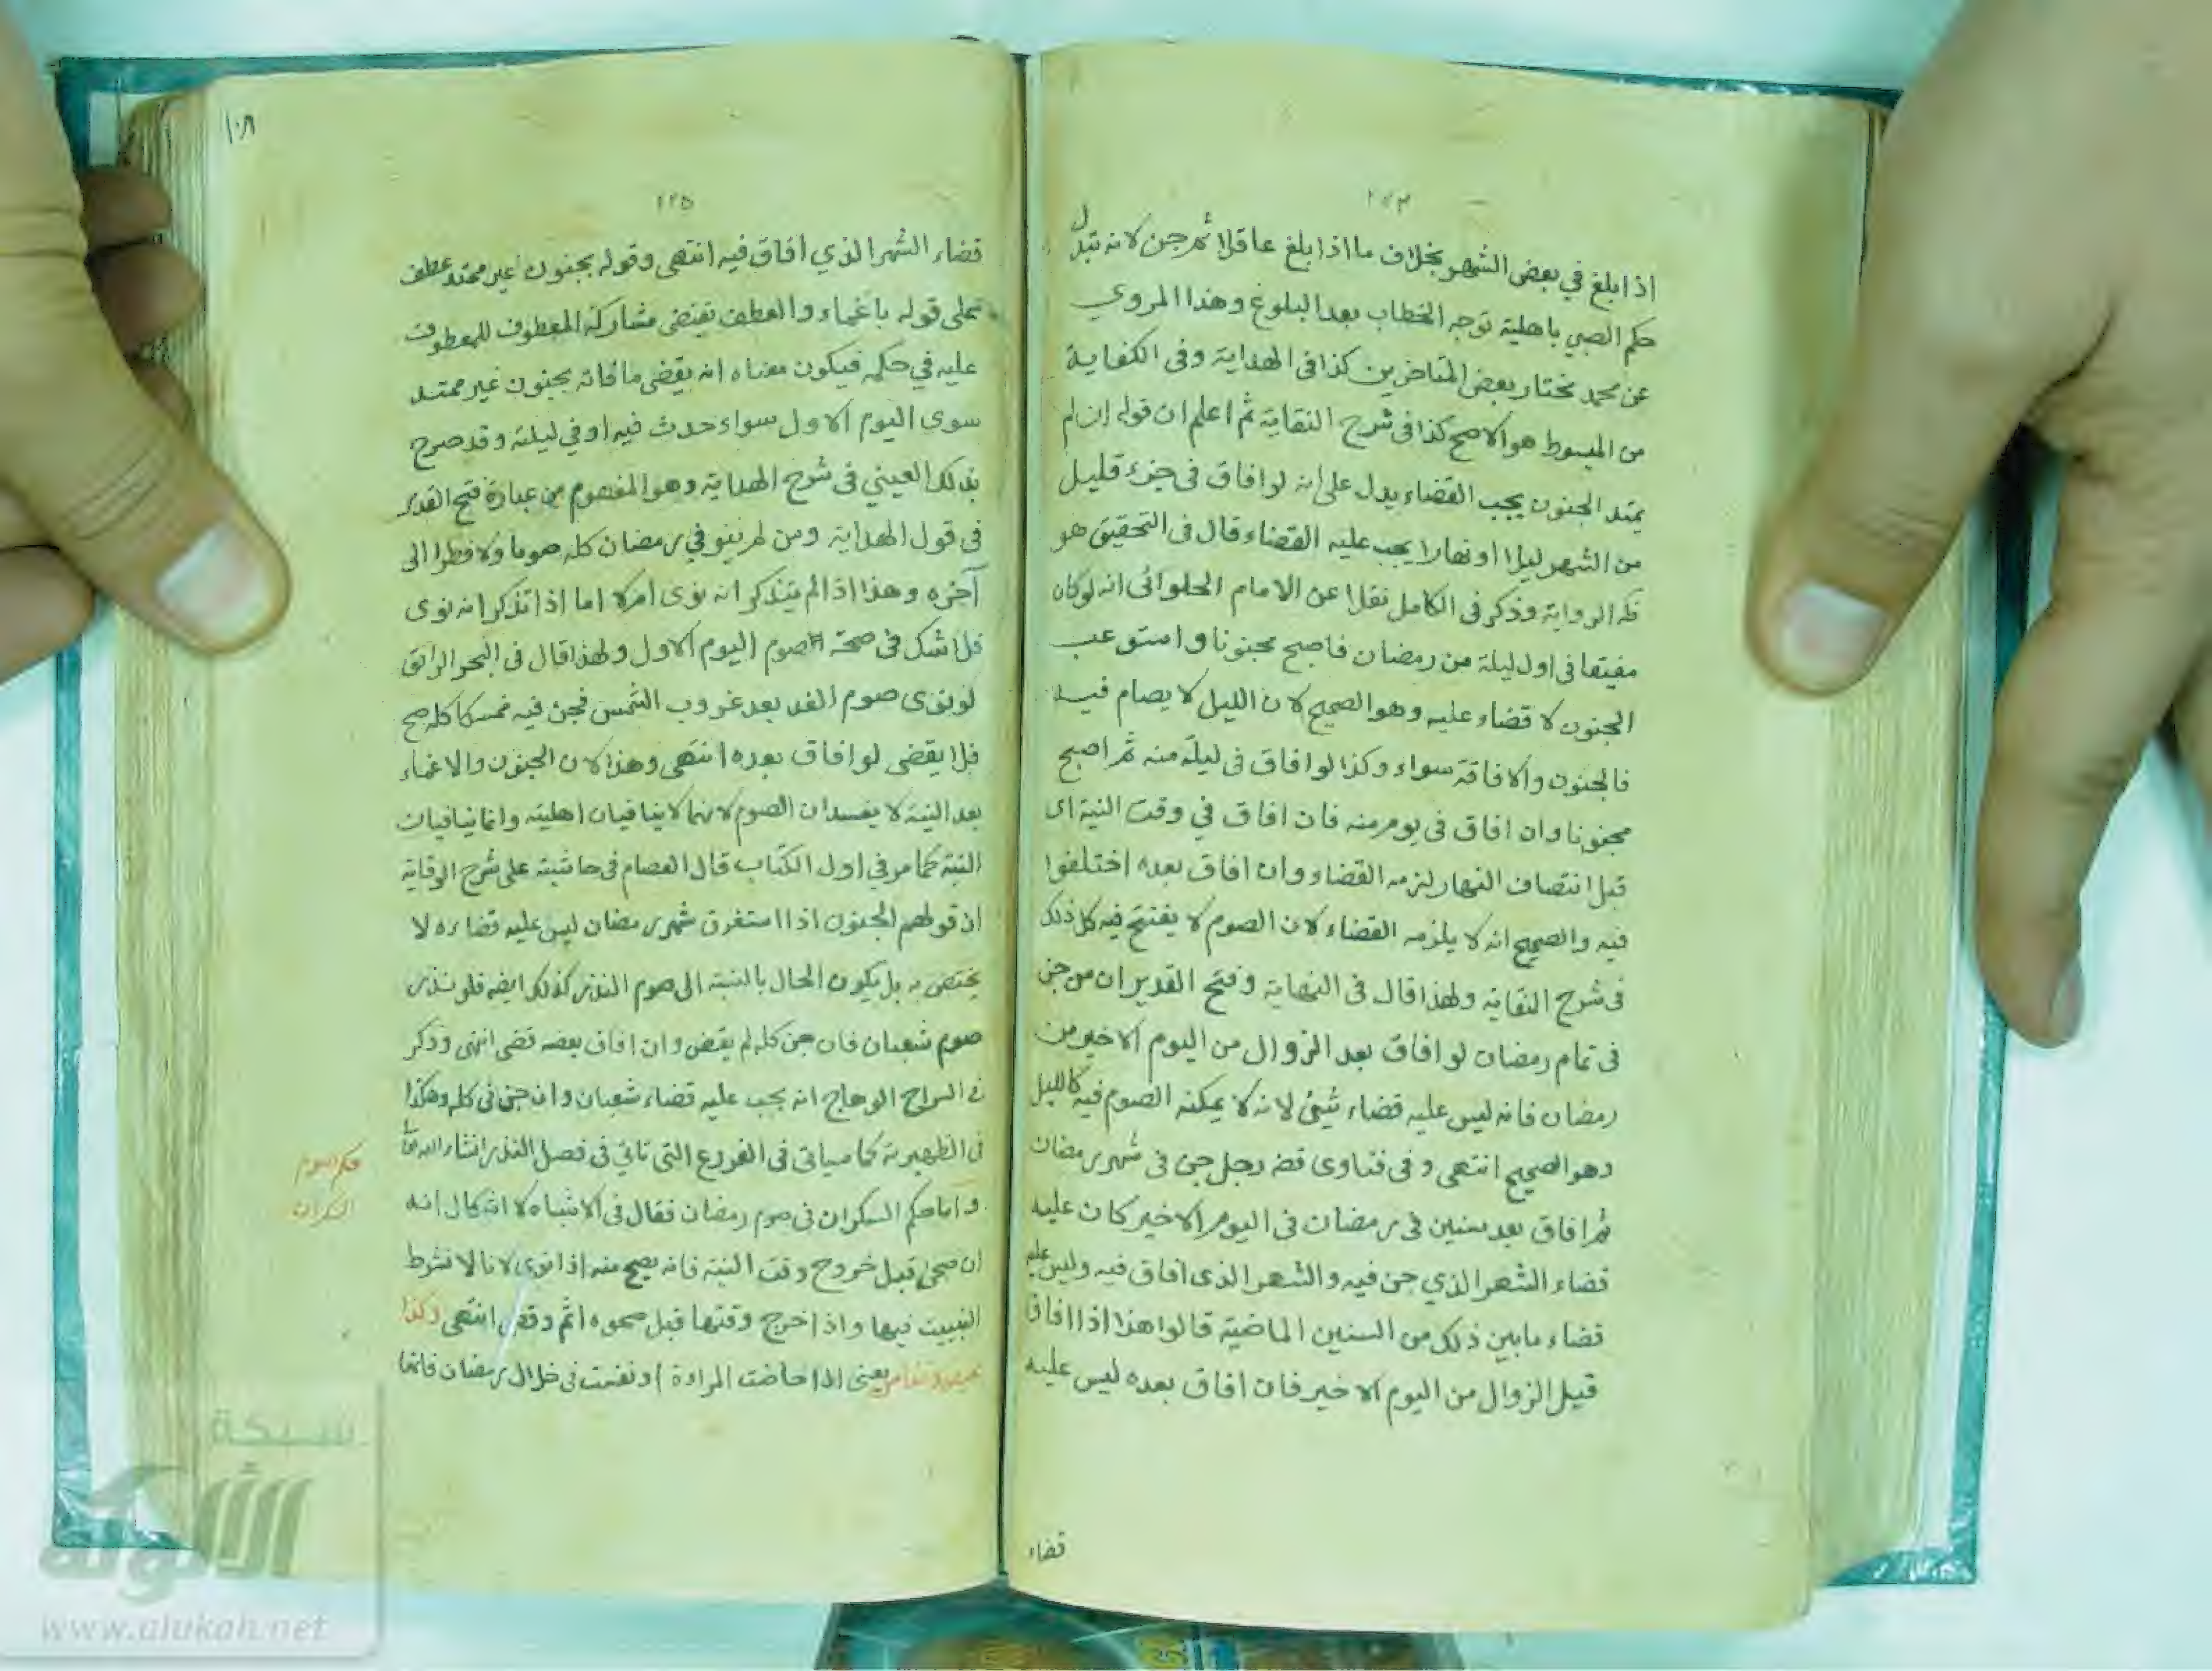 اذا بلغ في بعض الشهر بخلاف ما اذا بلغ عاقلا ثم جن لانه تبدل
حكم الصبي باهلية توجه الخطاب بعد البلوغ وهذا المروي
عن محمد مختار بعض المتاخرين كذا في الهداية وفي الكفاية
من المبسوط هو الاصح كذا في شرح النقاية ثم اعلم ان قوله ان لم
يمتد الجنون يجب القضاء يدل على انه لو افاق في جزء قليل
من الشهر ليلا او نهارا يجب عليه القضاء قال في التحقيق هو
ظه الرواية وذكر في الكامل نقلا عن الامام الحلوائى انه لو كان
مفيقا في اول ليلة من رمضان فاصبح مجنونا واستوعب
الجنون لا قضاء عليه وهو الصحيح لان الليل لا يصام فيه
فالجنون والافاقة سواء وكذا لو افاق في ليلة منه ثم اصبح
مجنونا وان افاق في يوم منه فان افاق في وقت النية اى
قبل انتصاف النهار لزمه القضاء وان افاق بعده اختلفوا
فيه والصحيح انه لا يلزمه القضاء لان الصوم لا يفتتح فيه كل ذلك
في شرح النقاية ولهذا قال في النهاية وفتح القدير ان من جن
في تمام رمضان لو افاق بعد الزوال من اليوم الاخير من
رمضان فانه ليس عليه قضاء شيئ لانه لا يمكنه الصوم فيه كالليل
وهو الصحيح انتهى وفي فتاوى قضه رجل جن في شهر رمضان
ثم افاق بعد سنين في رمضان في اليوم الاخير كان عليه
قضاء الشهر الذي جن فيه والشهر الذى افاق فيه وليس عليه
قضاء ما بين ذلك من السنين الماضية قالوا هذا اذا افاق
قبل الزوال من اليوم الاخير فان افاق بعده ليس عليه
قضاء
١٢٥
قضاء الشهر الذي افاق فيه انتهى وقوله بجنون غير ممتد عطف
على قوله باغماء والعطف تقتضى مشاركة المعطوف للمعطوف
عليه في حكمه فيكون معناه انه يقضى ما فاته بجنون غير ممتد
سوى اليوم الاول سواء حدث فيه او في ليلته وقد صرح
بذلك العيني في شرح الهداية وهو المفهوم من عبارة فتح القدير
في قول الهداية ومن لم ينو في رمضان كله صوما ولا فطرا الى
آخره وهذا اذا لم يتذكر انه نوى ام لا اما اذا تذكر انه نوى
فلا شك في صحة صوم اليوم الاول ولهذا قال في البحر الرائق
لو نوى صوم الغد بعد غروب الشمس فجن فيه ممسكا كله صح
فلا يقضى لو افاق بعده انتهى وهذا لان الجنون والاغماء
بعد النية لا يفسدان الصوم لانهما لا ينافيان اهليته وانما ينافيان
النية كما مر في اول الكتاب قال العصام في حاشيته على شرح الوقاية
ان قولهم الجنون اذا استغرق شهر رمضان ليس عليه قضاءه لا
يختص به بل يكون الحال بالنسبة الى صوم النذر كذلك ايضه فلو نذر
صوم شعبان فان جن كله لم يقض وان افاق بعضه قضى انتهى وذكر
في السراج الوهاج انه يجب عليه قضاء شعبان وان جن في كله وهكذا
في الظهيرية كما سياتى في الفروع التى تاتي في فصل النذر انشاء الله تعالى
واما حكم السكران في صوم رمضان فقال في الاشباه لا اشكال انه
ان صحى قبل خروج وقت النية فانه يصح منه اذا نوى لانا لا نشرط
التبييت فيها واذا خرج وقتها قبل صحوه اثم وقضى انتهى وكذا
بحيض ونفاس يعنى اذا حاضت المراءة او نفست في خلال رمضان فانها
حكم صوم
السكران
شبكة
الألوكة
www.alukah.net